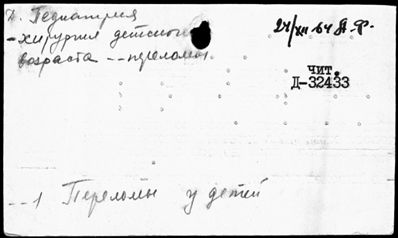 2. Педиатрия
24/XII 64 А.Ф.
- хирургия детского
возраста -- переломы.
чит.
Д-32433
--1 Переломы у детей